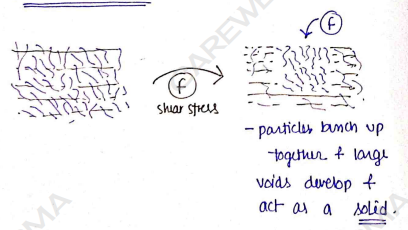 f
f
shear stress
- particles bunch up
together & large
voids develop &
act as a solid.